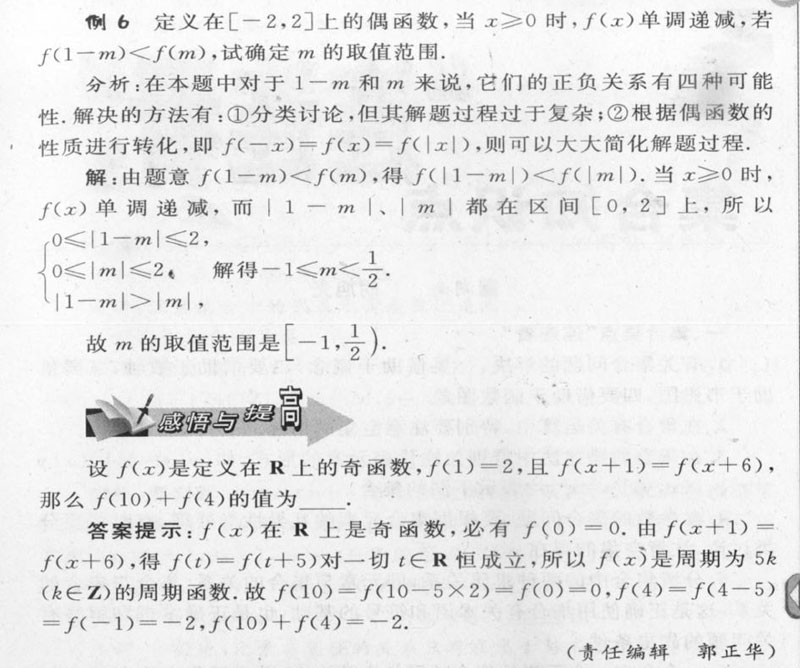 例6 定义在[－2,2]上的偶函数,当 x≥0 时,f(x)单调递减,若
f(1－m)<f(m),试确定 m 的取值范围.
分析:在本题中对于 1－m 和 m 来说,它们的正负关系有四种可能
性.解决的方法有:①分类讨论,但其解题过程过于复杂;②根据偶函数的
性质进行转化,即 f(－x)=f(x)=f(|x|),则可以大大简化解题过程.
解:由题意 f(1－m)<f(m),得 f(|1－m|)<f(|m|).当 x≥0 时,
f(x)单调递减,而|1－m|、|m|都在区间[0,2]上,所以
0≤|1－m|≤2,
0≤|m|≤2, 解得－1≤m<1/2.
|1－m|>|m|,
故 m 的取值范围是[－1,1/2).
感悟与提高
设 f(x)是定义在 R 上的奇函数,f(1)=2,且 f(x+1)=f(x+6),
那么 f(10)+f(4)的值为
答案提示:f(x)在 R 上是奇函数,必有 f(0)=0.由 f(x+1)=
f(x+6),得 f(t)=f(t+5)对一切 t∈R 恒成立,所以 f(x)是周期为 5k
(k∈Z)的周期函数.故 f(10)=f(10－5×2)=f(0)=0,f(4)=f(4－5)
=f(－1)=－2,f(10)+f(4)=－2.
(责任编辑 郭正华)